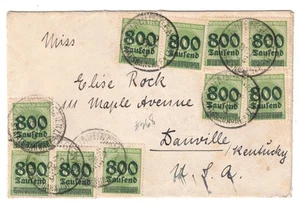 800 Tausend
800 Tausend
800 Tausend
800 Tausend
800 Tausend
800 Tausend
Miss
Elise Rock
111 Maple Avenue
Danville
Kentucky
U. S. A.
800 Tausend
800 Tausend
800 Tausend
800 Tausend